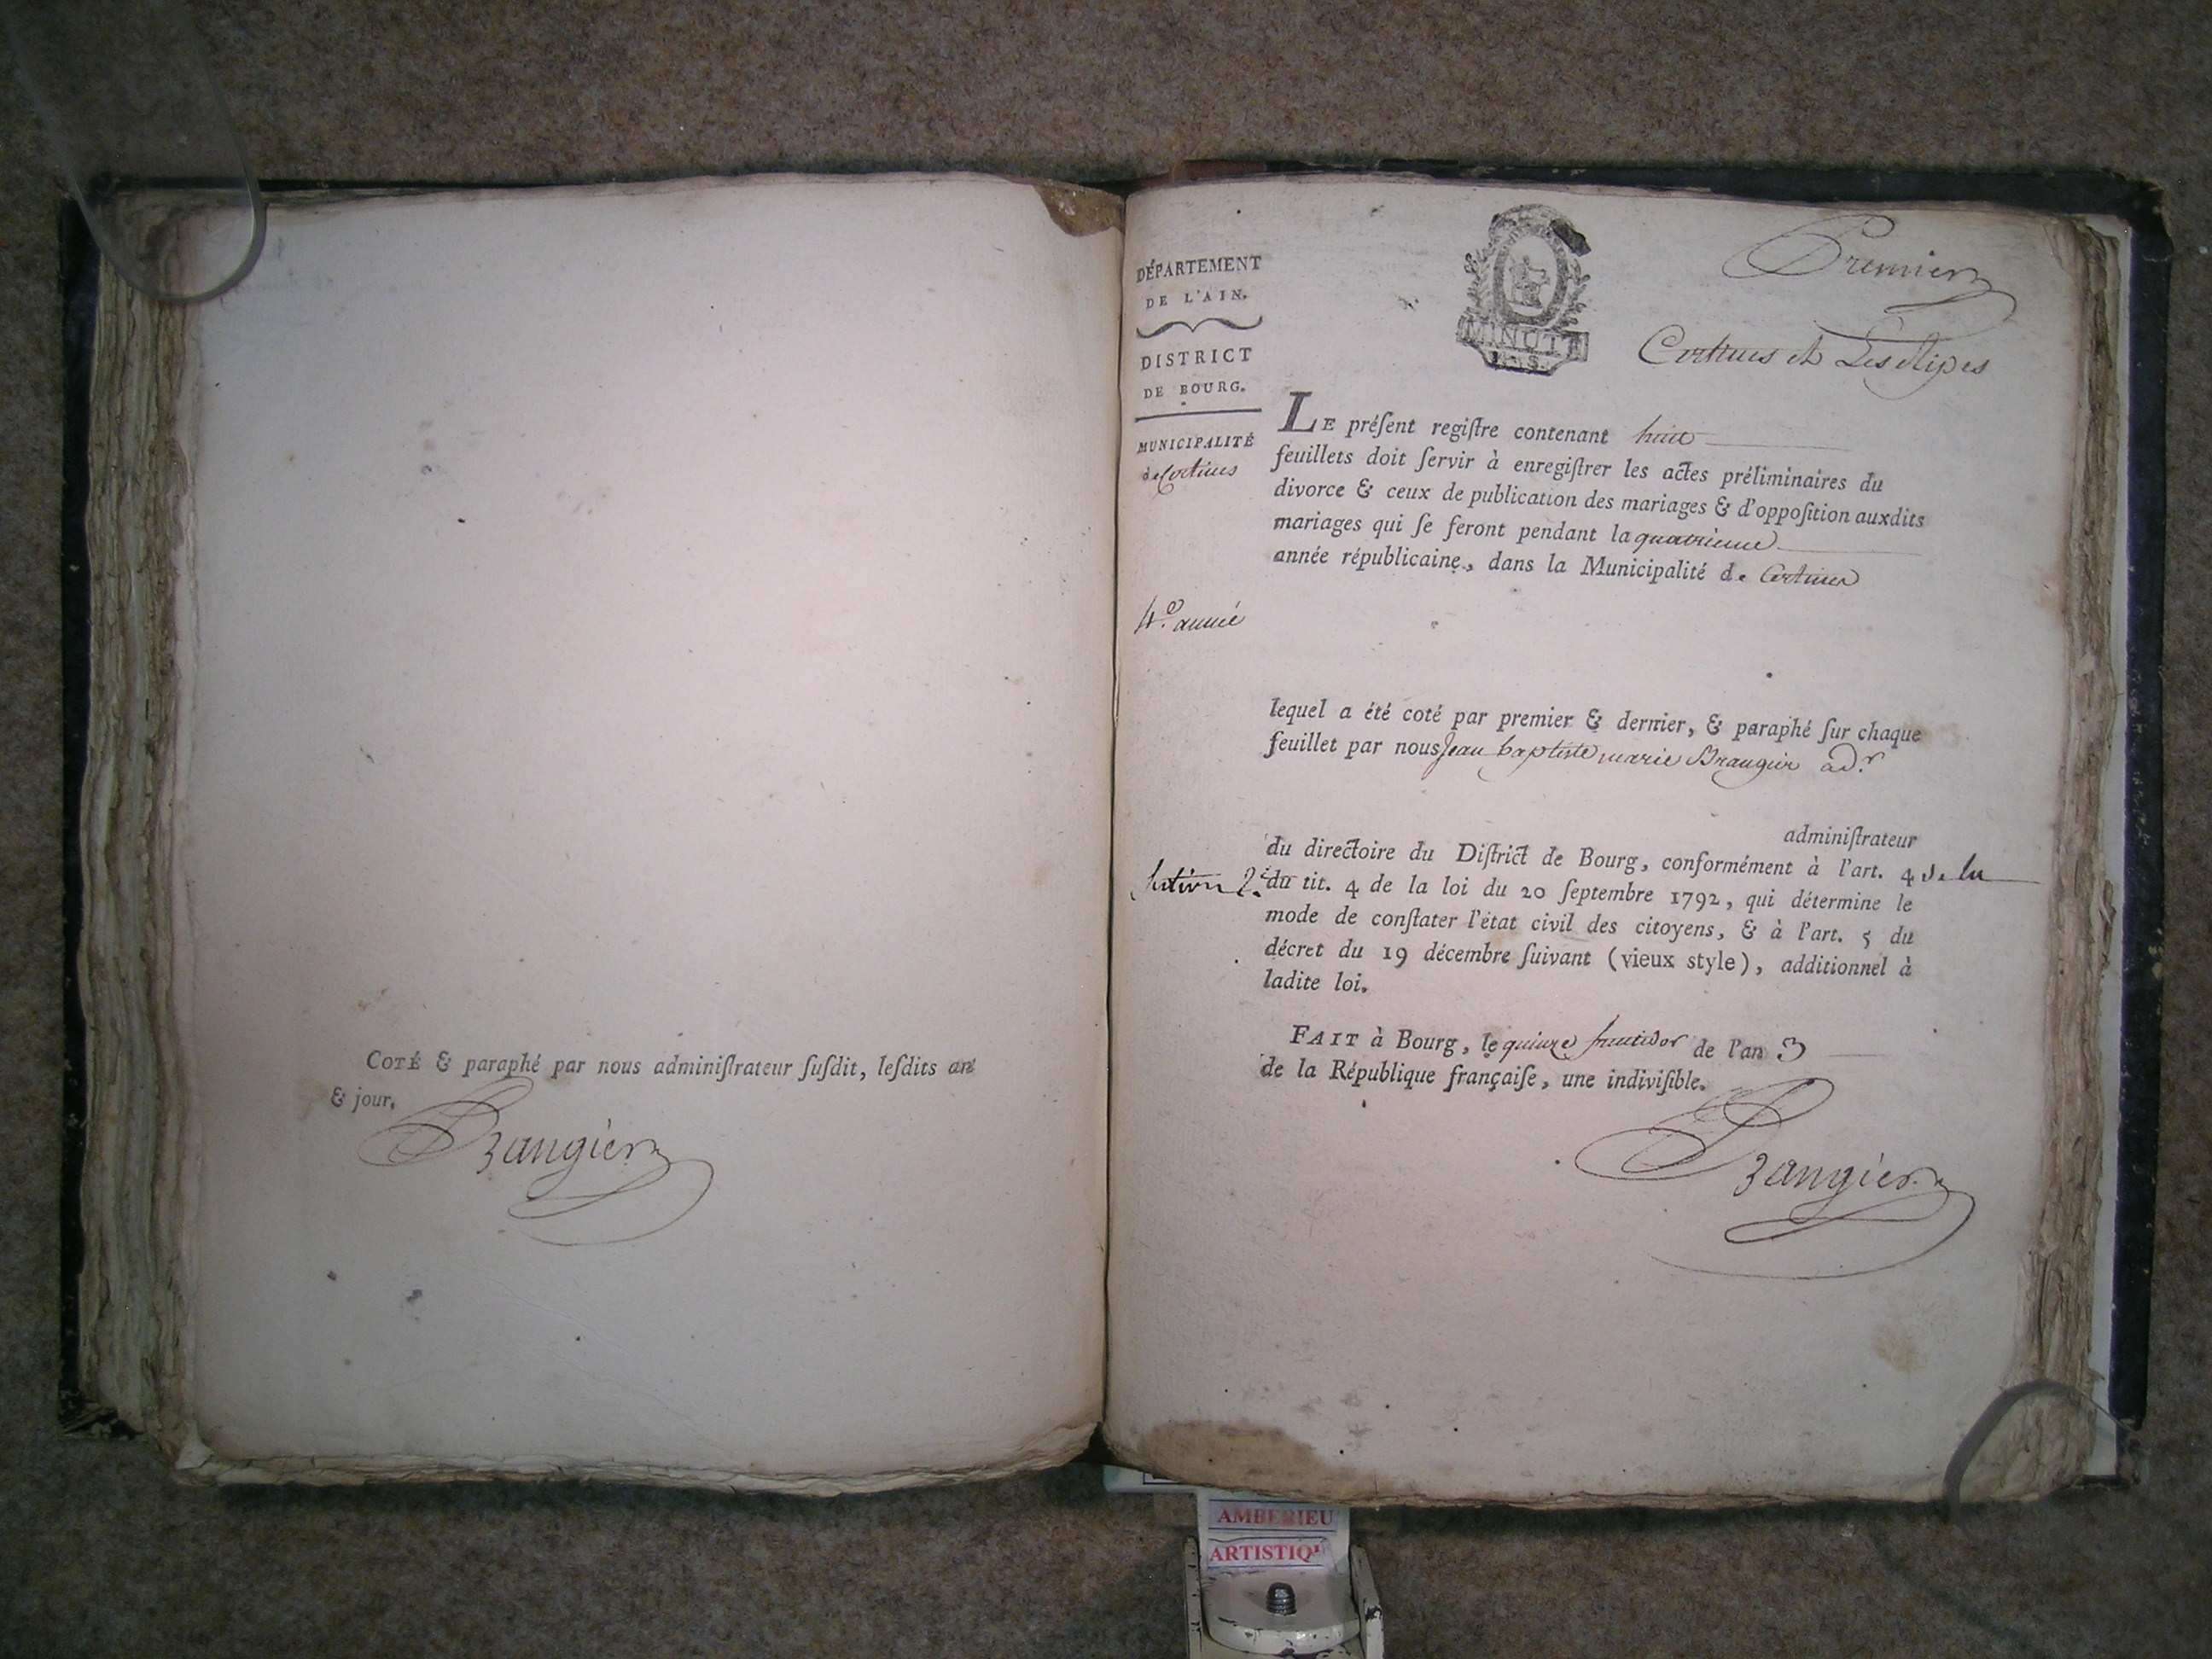 COTÉ & paraphé par nous adminiſtrateur ſuſdit, leſdits an
& jour.
Brangier
DÉPARTEMENT
DE L'AIN.
DISTRICT
DE BOURG.
MUNICIPALITÉ
de
4e. année
Section 2e.
MINUTE
Premier
et Les
LE préſent regiſtre contenant huit
feuillets doit ſervir à enregiſtrer les actes préliminaires du
divorce & ceux de publication des mariages & d'oppoſition auxdits
mariages qui ſe feront pendant la quatrieme
année républicaine, dans la Municipalité de
lequel a été coté par premier & dernier, & paraphé ſur chaque
feuillet par nous Jean baptiste marie Brangier adr
adminiſtrateur
du directoire du Diſtrict de Bourg, conformément à l'art. 4 de la
du tit. 4 de la loi du 20 ſeptembre 1792, qui détermine le
mode de conſtater l'état civil des citoyens, & à l'art. 5 du
décret du 19 décembre ſuivant (vieux style), additionnel à
ladite loi.
FAIT à Bourg, le quinze fructidor de l'an 3
de la République françaiſe, une indiviſible.
Brangier
AMBERIEU
ARTISTIQU